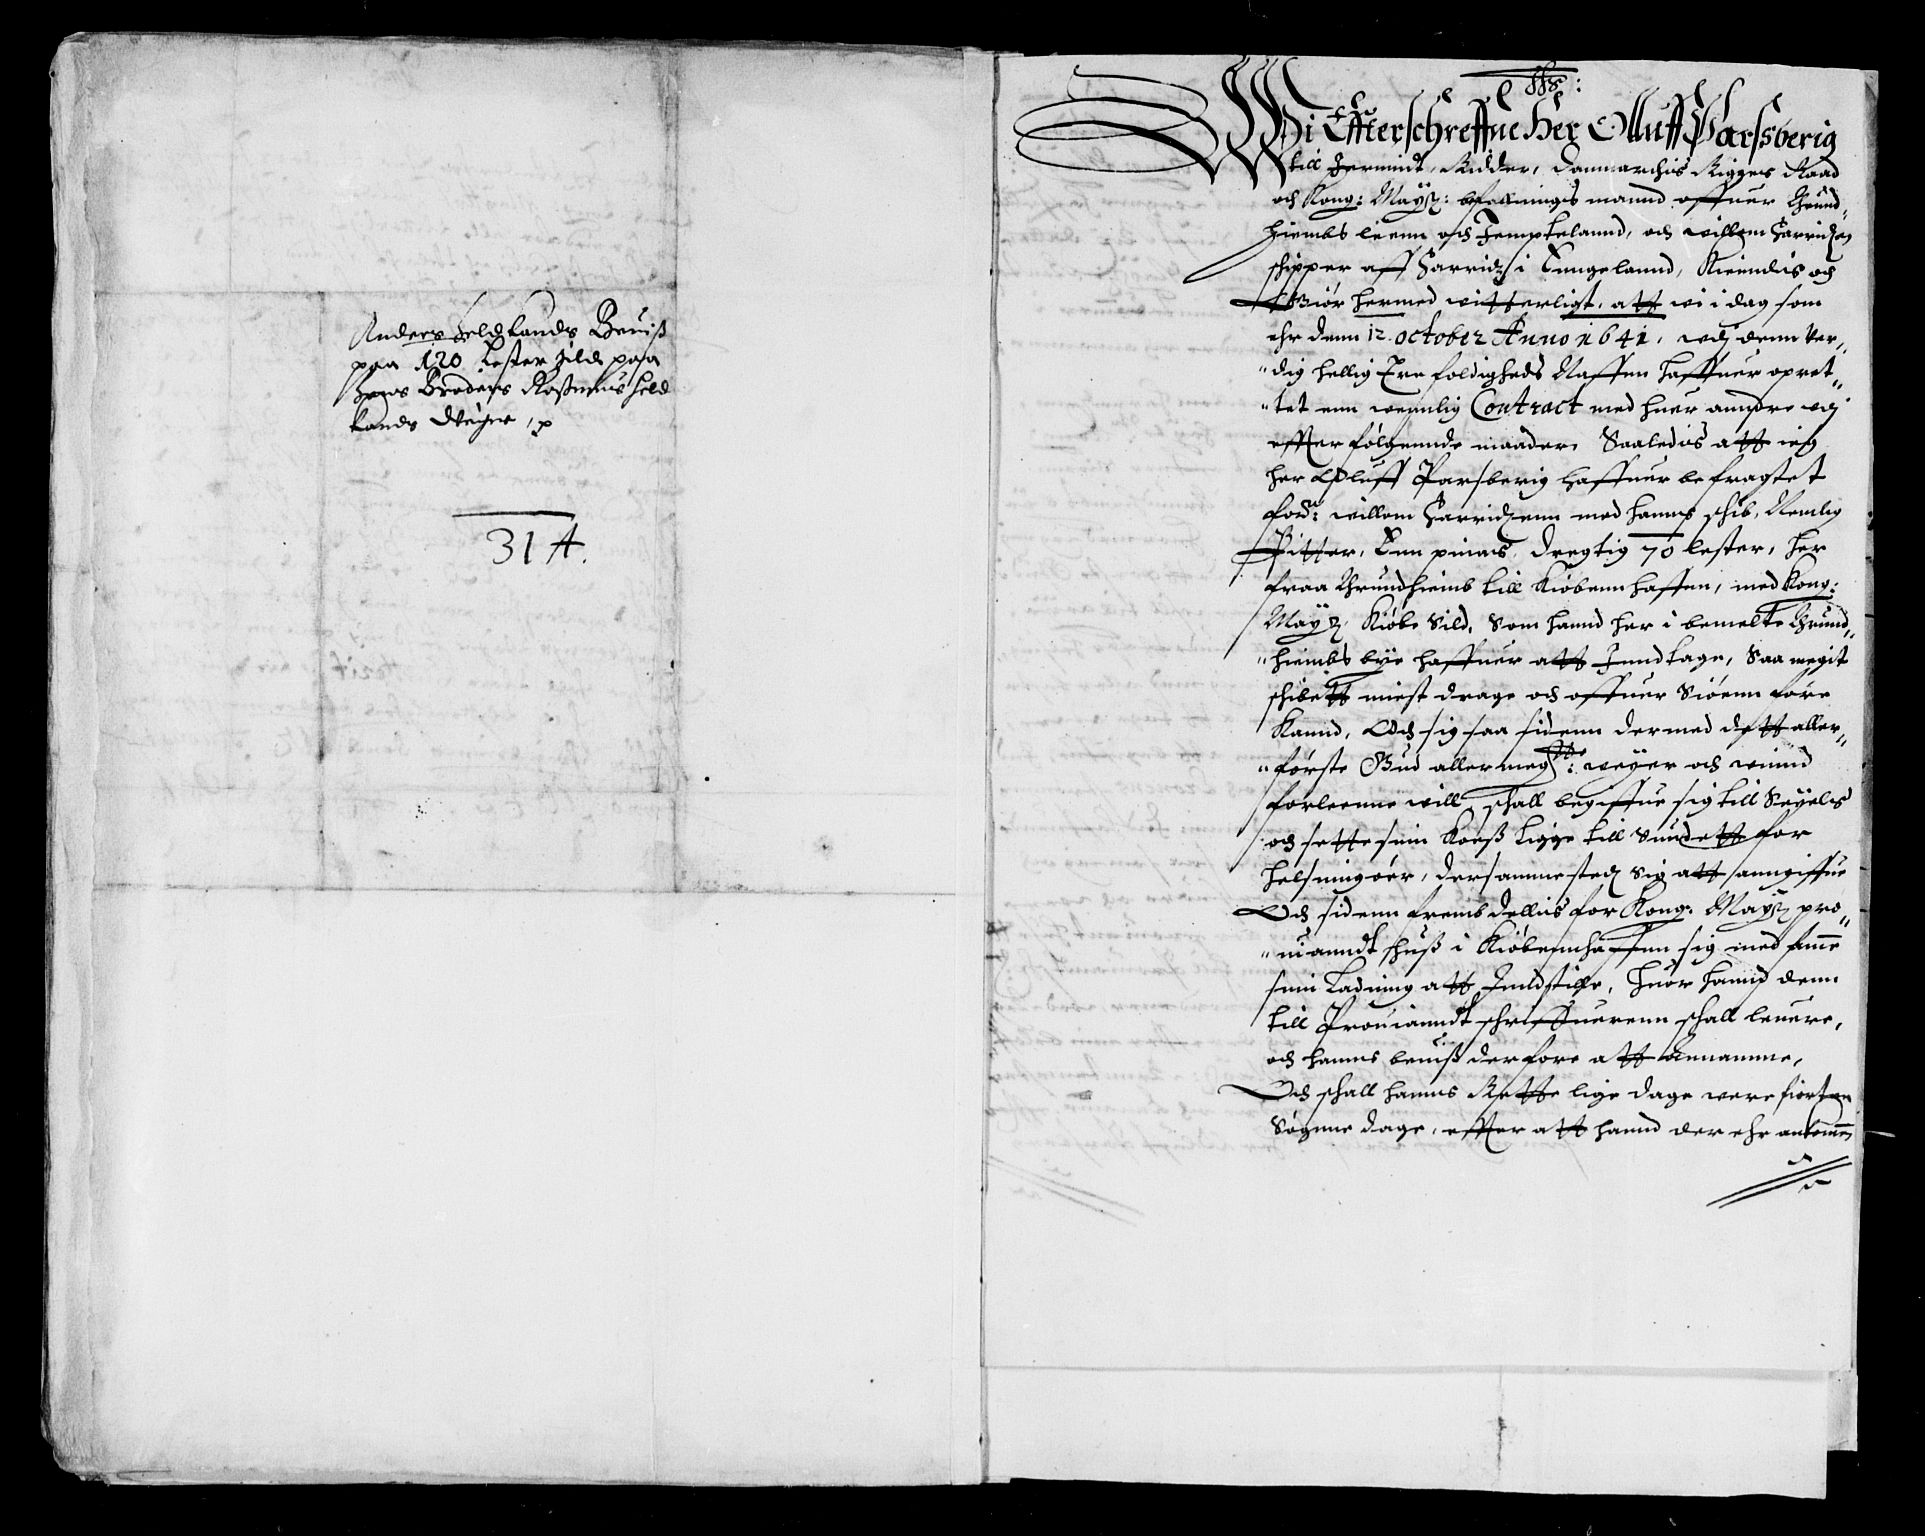 Anders Heldtlands Beuiß
paa 120 Lester Sild paa
hans Broders Rasmus Held
lands Vegne
31 A.
Wi Effterschreffne Her Olluff Parssberig
till Jernuidt, Ridder, Danmarchis Rigges Raad
och Kong: Maytz: befallnings mannd offuer Thrund„
hiembs leenn och Jempteland, och willem
schipper aff Harridz i Engelannd, Kiendis och
Giør hermed witterligt, att wi i dag som
ehr denn 12 october Anno 1641, udj denn Wer„
„dig hellig Tre foldigheds Naffn haffuer opret„
„tet enn wennlig Contract med huer anndre udj
effter følgennde maader. Saaledis att ieg
her Oluff Parsberig haffuer befragtet
ford: willem Harridzenn med hanns schib, Nemlig
Pitter, Enn pinas, dregtig 70 lester, her
fraa Thrundhiemb till Kiøbennhaffen, med Kong:
Maytz Kiøbe Sild, Som hannd her i bemelte Thrund„
„hiembs bye haffuer att Inndtage, Saa megit
schibett miest drage och offuer Siøenn føre
Kannd, Och sig saa sidenn dermed dett aller„
„første Gud allermegtste: weyer och winnd
forleenne will, schall begiffue sig till Seyels
och sette sinn Koeß ligge till Sundett for
Helsingøer, dersammestedz Sig att anngiffue
Och sidenn frembdellis for Kong: Maytz pro„
„uianndt huß i Kiøbennhaffen sig med samme
sinn Ladning att Inndstille, Huor hannd denn
till Prouianndt schriffuerenn schall leuere,
och hanns beuiß derfore att Annamme,
Och schall hanns Rette lige dage were fiorten
Søgnne dage, effter att hannd der ehr ankommen